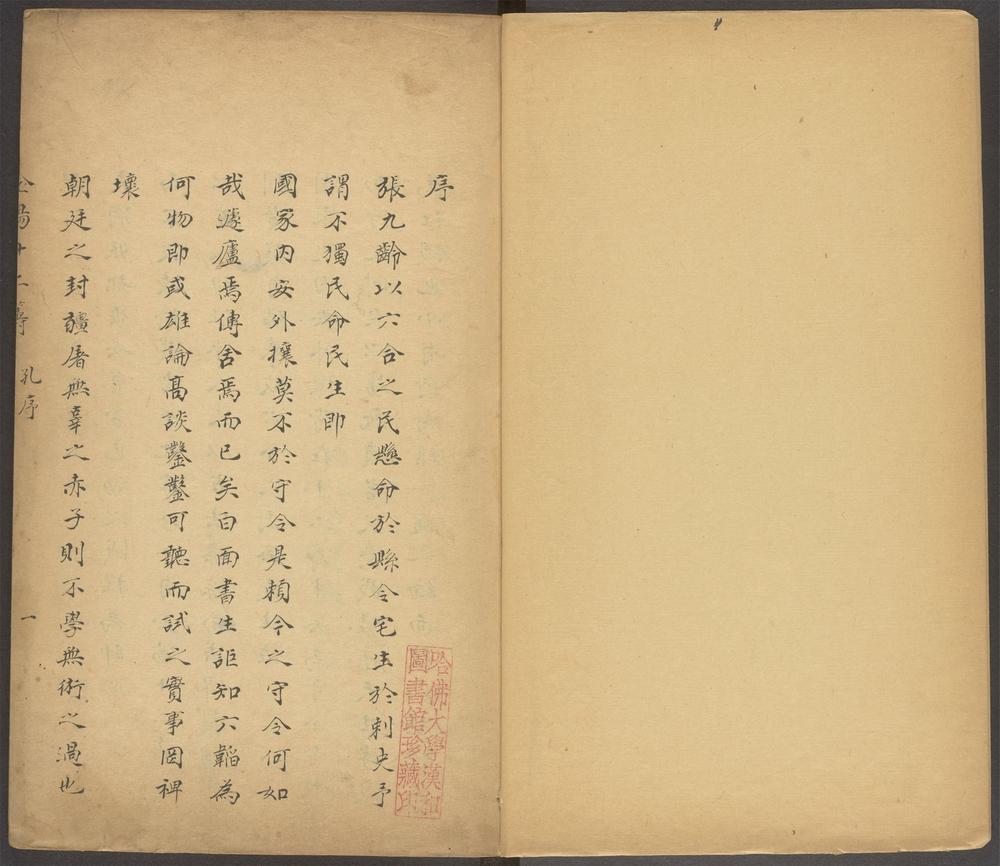 序
張九齡以六合之民懸命於縣令宅生於刺史予
謂不獨民命民生即
國家內安外攘莫不於守令是賴今之守令何如
哉蘧廬焉傳舍焉而已矣白面書生詎知六韜為
何物即或雄論高談鑿鑿可聽而試之實事罔裨
壞
朝廷之封疆屠無辜之赤子則不學無術之過也
金湯十二籌
孔序
一
哈佛大學漢和
圖書館珍藏印